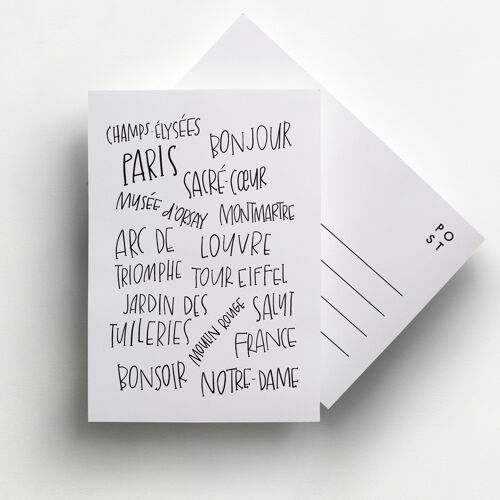 CHAMPS-ÉLYSÉES
BONJOUR
PARIS
SACRÉ-CŒUR
MUSÉE d'ORSAY
MONTMARTRE
ARC DE
TRIOMPHE
LOUVRE
TOUR EIFFEL
JARDIN DES
TUILERIES
MOULIN ROUGE
SALUT
FRANCE
BONSOIR
NOTRE-DAME
PO
ST